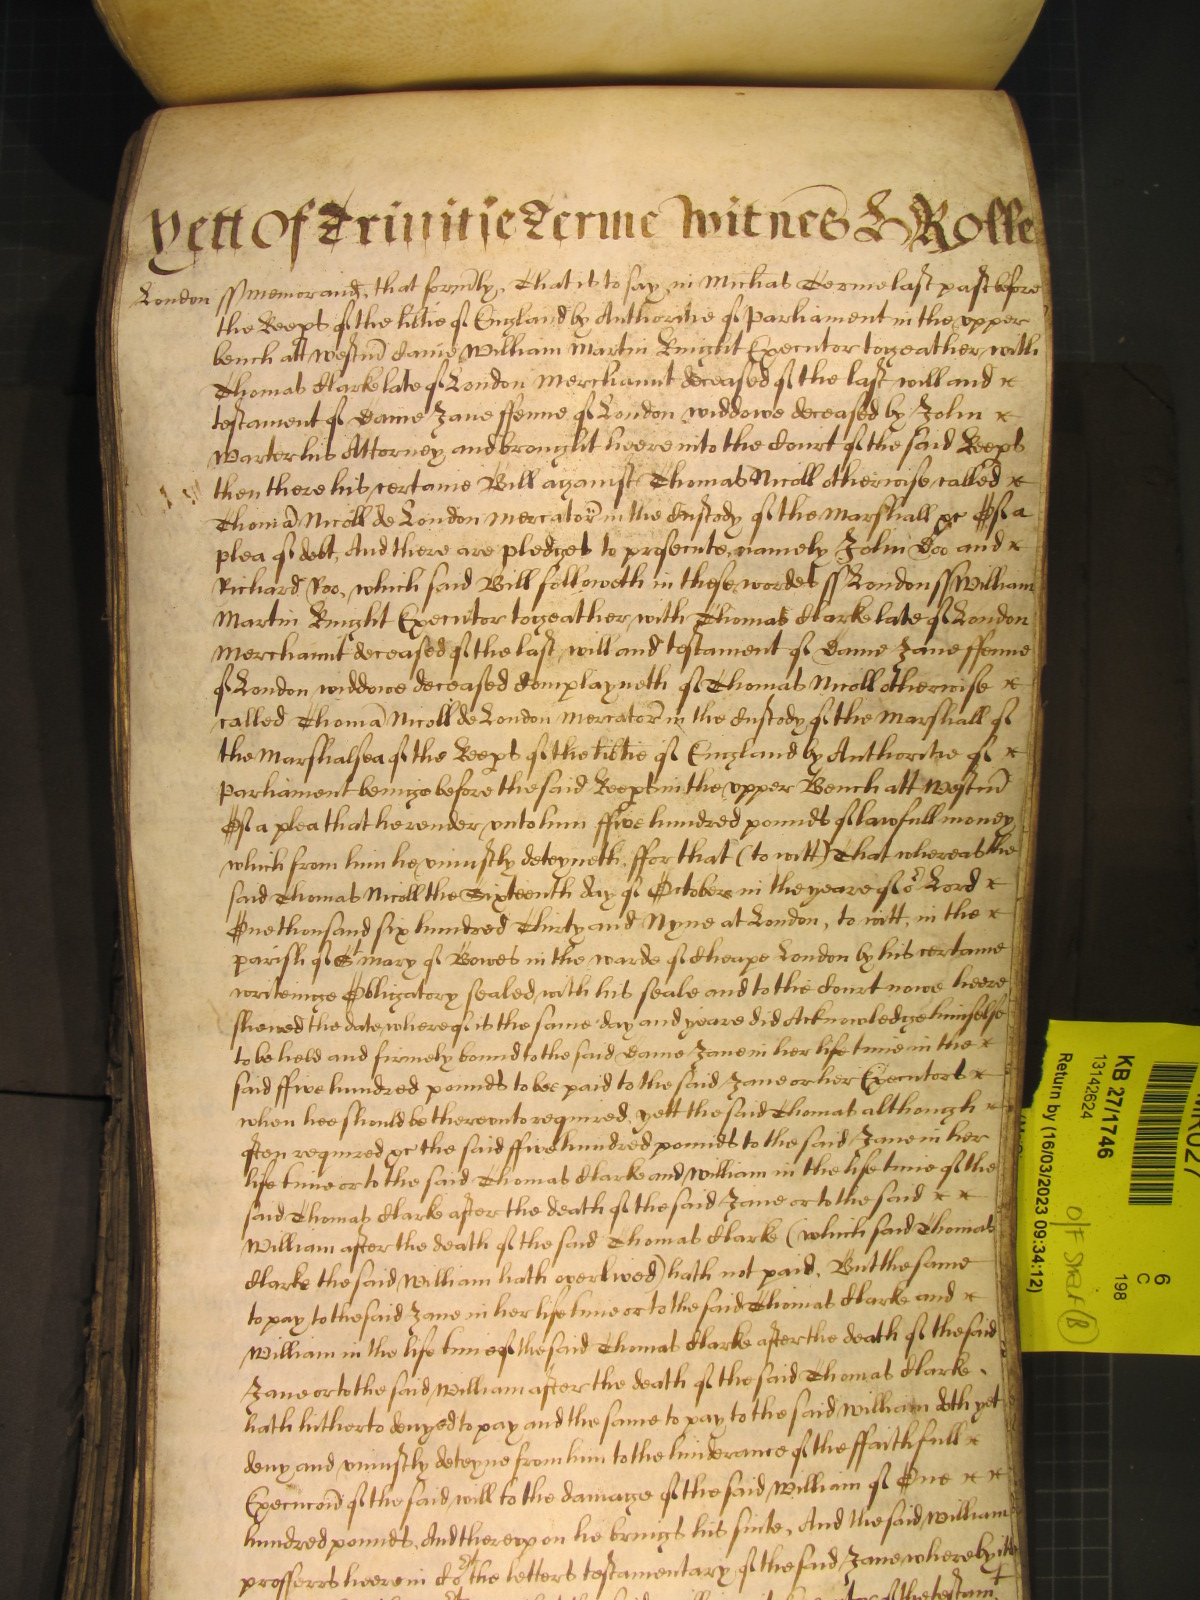 Yett Of Trinitie Terme Witnes H Rolle
London ss memorand. that formly, That is to say, in Michas Terme last past before
the Keeps of the libtie of England by Authoritie of Parliament in the vpper
bench att Westm̄ came William Martin Knight Executor togeather with
Thomas Clarke late of London Merchannt deceased of the last will and
testament of Dame Jane ffenne of London widdowe deceased by John
Warter his Attorney and brought heere into the Court of the said Keeps
then there his certaine Bill against Thomas Nicoll otherwise called
Thomā Nicoll de London mercator in the Custody of the Marshall &c Of a
plea of debt, And there are pledges to prosecute, namely John Doo and
Richard Roo, which said Bill followeth in these wordes ss London ss William
Martin Knight Executor togeather with Thomas Clarke late of London
Merchannt deceased of the last will and testament of Dame Jane ffenne
of London widdowe deceased Complayneth of Thomas Nicoll otherwise
called Thomā Nicoll de London mercator in the Custody of the Marshall of
the Marshalsea of the Keeps of the libtie of England by Authoritie of
Parliament beinge before the said Keeps in the vpper Bench att Westm̄
Of a plea that he render vnto him ffive hundred pounds of lawfull money
which from him he vniustly deteyneth, ffor that (to witt) That whereas the
said Thomas Nicoll the Sixteenth day of October in the yeare of or Lord
One thousand six hundred Thirty and Nyne at London, to witt, in the
parish of St mary of Bowes in the warde of Cheape London by his certaine
writeinge Obligatory sealed with his seale and to the Court nowe heere
shewed the date whereof is the same day and yeare did Acknowledge himselfe
to be held and firmely bound to the said Dame Jane in her life time in the
said ffive hundred pounds to bee paid to the said Jane or her Executors
when hee should be therevnto required, yett the said Thomas although
often required &c the said ffive hundred pounds to the said Jane in her
life time or to the said Thomas Clarke and William in the life time of the
said Thomas Clarke after the death of the said Jane or to the said
William after the death of the said Thomas Clarke (which said Thomas
Clarke the said William hath overlived) hath not paid, But the same
to pay to the said Jane in her life time or to the said Thomas Clarke and
William in the life time of the said Thomas Clarke after the death of the said
Jane or to the said William after the death of the said Thomas Clarke,
hath hitherto denyed to pay and the same to pay to the said William doth yet
deny and vniustly deteyne from him to the hinderance of the ffaithfull
Execucōn of the said will to the damage of the said William of One
hundred pounds, And therevpon he brings his suite, And the said William
profferrs heere in Court the letters testamentary of the said Jane whereby itt
of the testamt
KB 27/1746
13142624
Return by (16/03/2023 09:34:12)
6
C
198